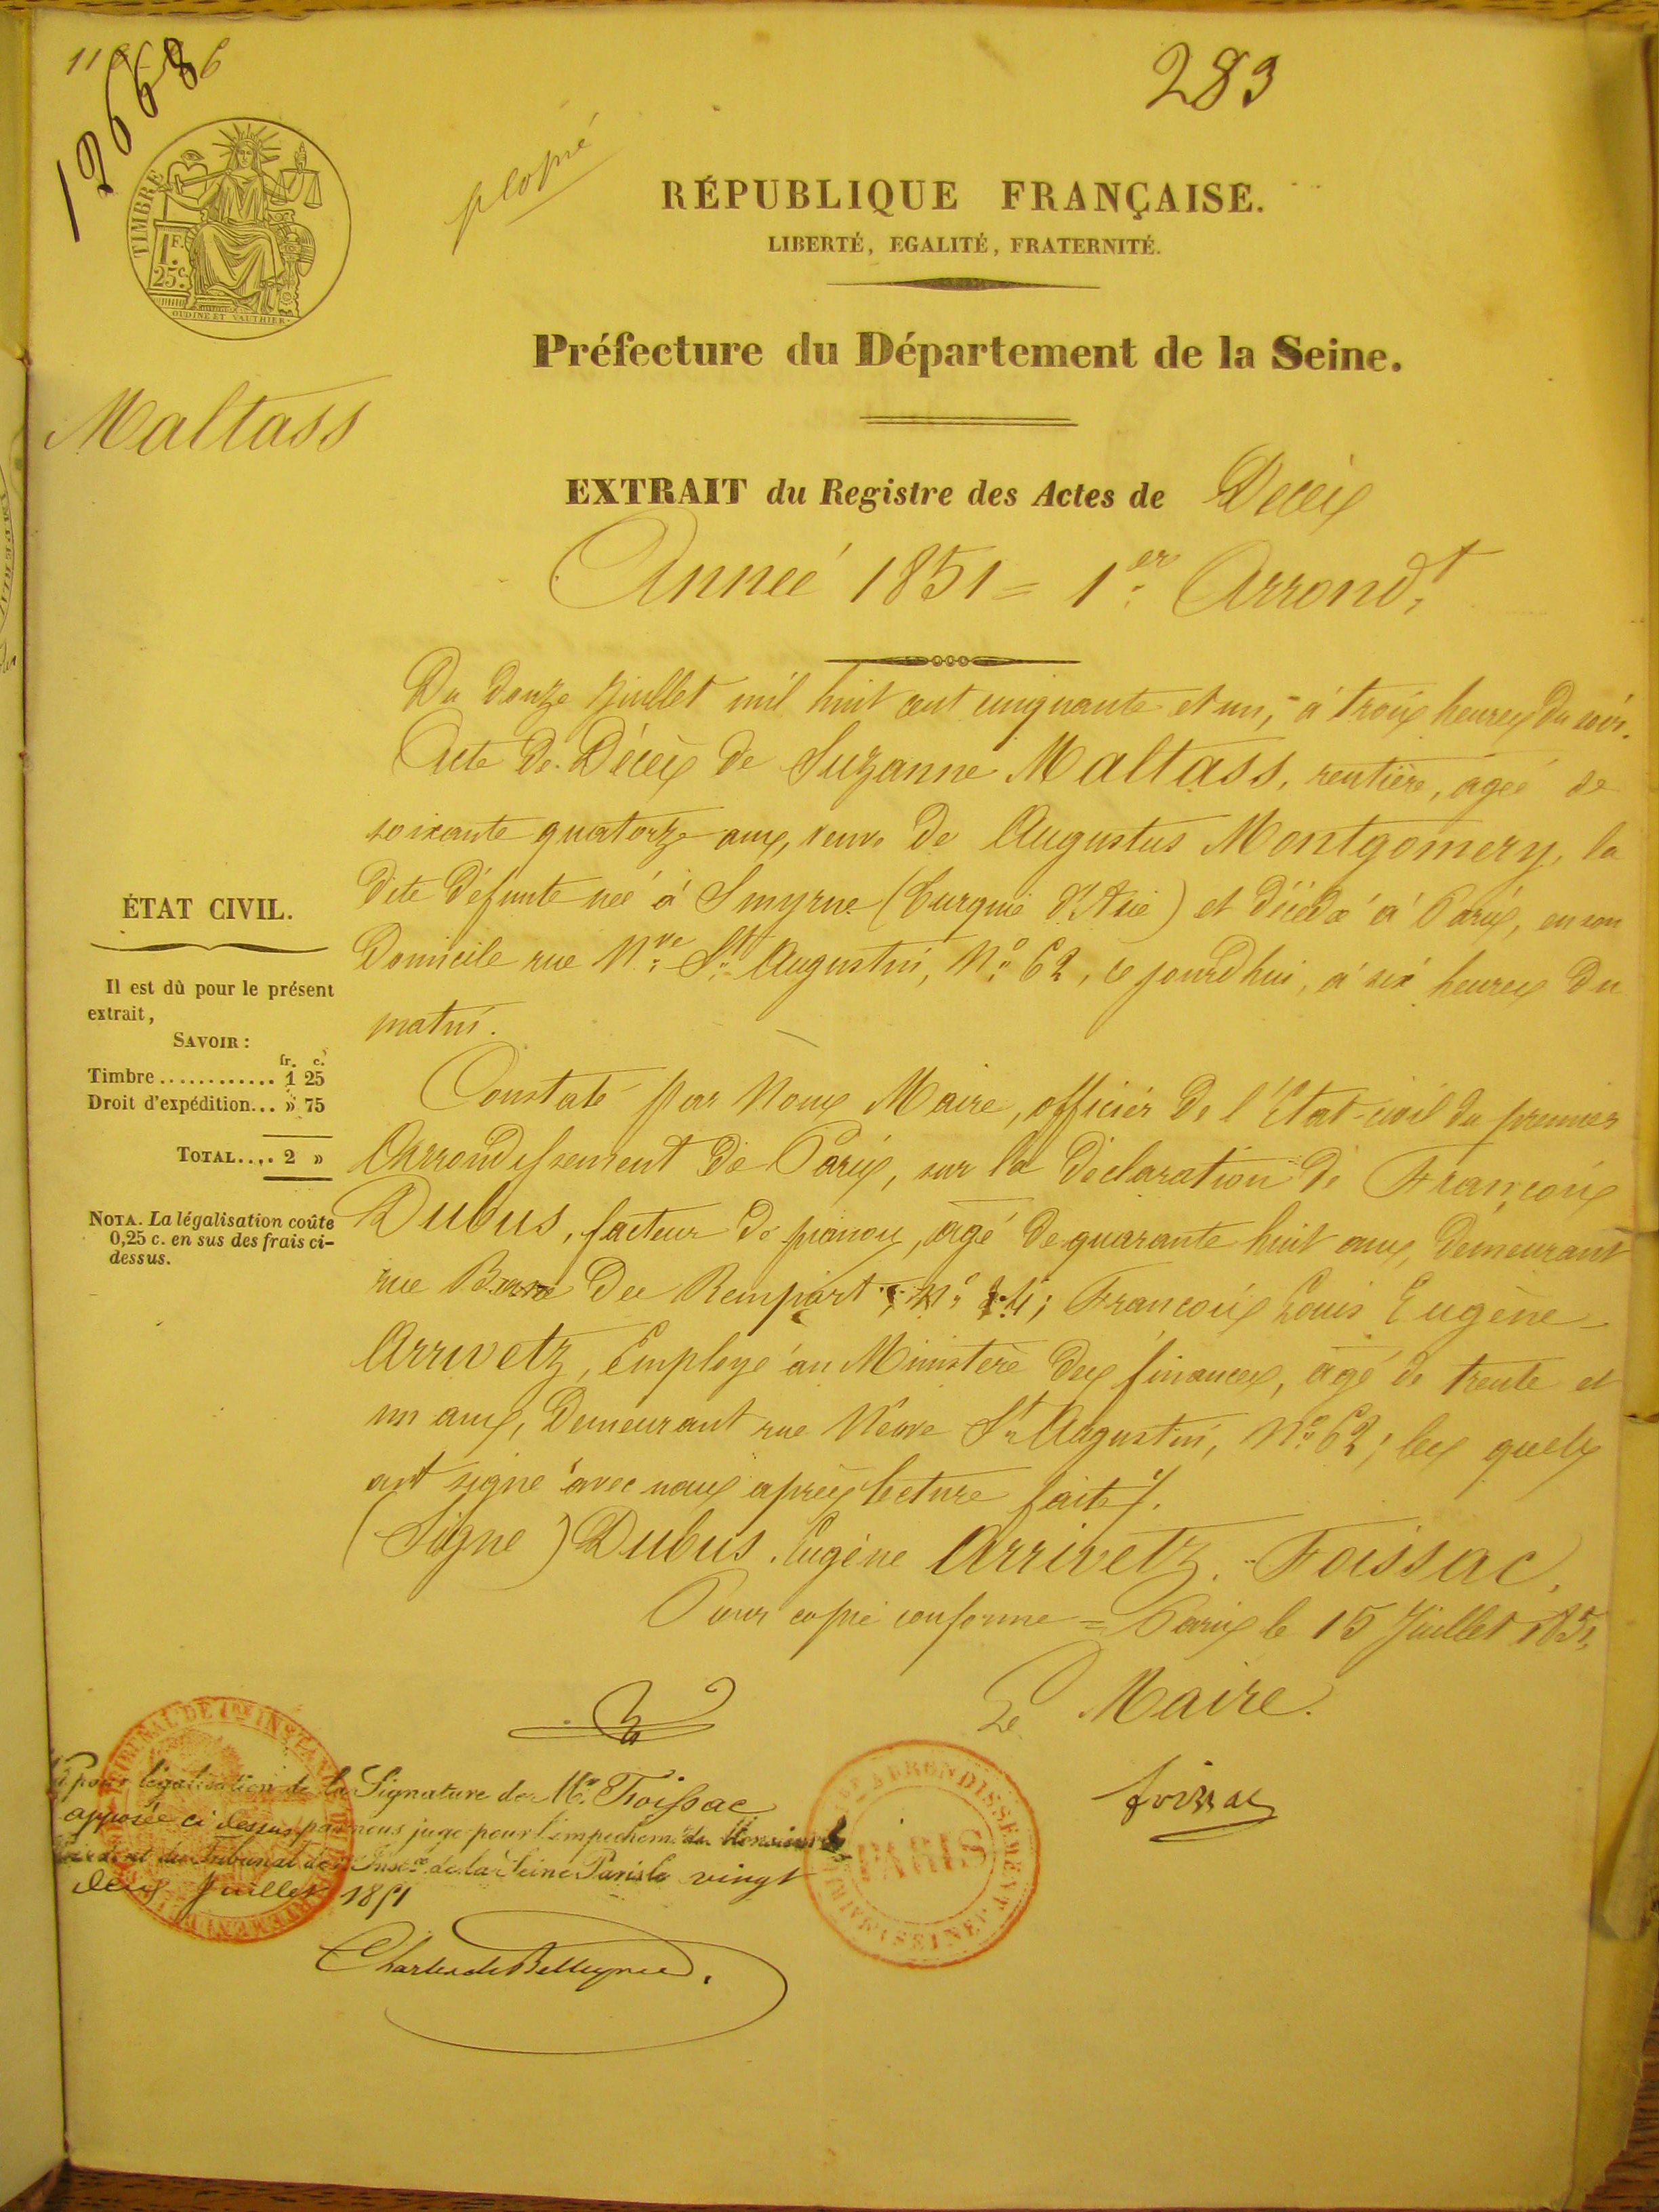 12668
283
p copie
TIMBRE
1 F.
25 c.
OUDINE ET VAUTHIER
RÉPUBLIQUE FRANÇAISE.
LIBERTÉ, EGALITÉ, FRATERNITÉ.
Préfecture du Département de la Seine.
Maltass
EXTRAIT du Registre des Actes de Décès
Année 1851 = 1er Arrondt
Du douze Juillet mil huit cent cinquante et un, à trois heures du soir.
Acte de Décès de Suzanne Maltass, rentière, agée de
soixante quatorze ans, veuve de Augustus Montgomery, la
dite défunte née à Smyrne (Turquie d'Asie) et décédée à Paris, en son
Domicile rue Nve St Augustin, No 62, ce jourd'hui, à six heures du
matin.
Constaté par Nous Maire, officier de l'Etat-civil du premier
Arrondissement de Paris, sur la déclaration de François
Dubus, facteur de pianos, agé de quarante huit ans, demeurant
rue Basse du Rempart, No 14; François Louis Eugène
Arrivetz, Employé au Ministère des finances, agé de trente et
un ans, Demeurant rue Neuve St Augustin, No 62; les quels
ont signé avec nous après lecture faite.
(Signé) Dubus. Eugène Arrivetz. Foissac.
Pour copie conforme = Paris le 15 Juillet 1851.
Le Maire.
Foissac
ÉTAT CIVIL.
Il est dû pour le présent
extrait,
SAVOIR :
fr. c.
Timbre............ 1 25
Droit d'expédition... » 75
TOTAL.... 2 »
NOTA. La légalisation coûte
0,25 c. en sus des frais ci-
dessus.
pour légalisation de la Signature de Mr. Foissac
apposée ci dessus par nous juge pour l'empechemt de Monsieur le
Président du Tribunal de 1re Insce de la Seine Paris le vingt
deux Juillet 1851
Charles de Belleyme
TRIBUNAL DE 1RE INSTANCE
ARRONDISSEMENT
PARIS
MAIRIE
SEINE